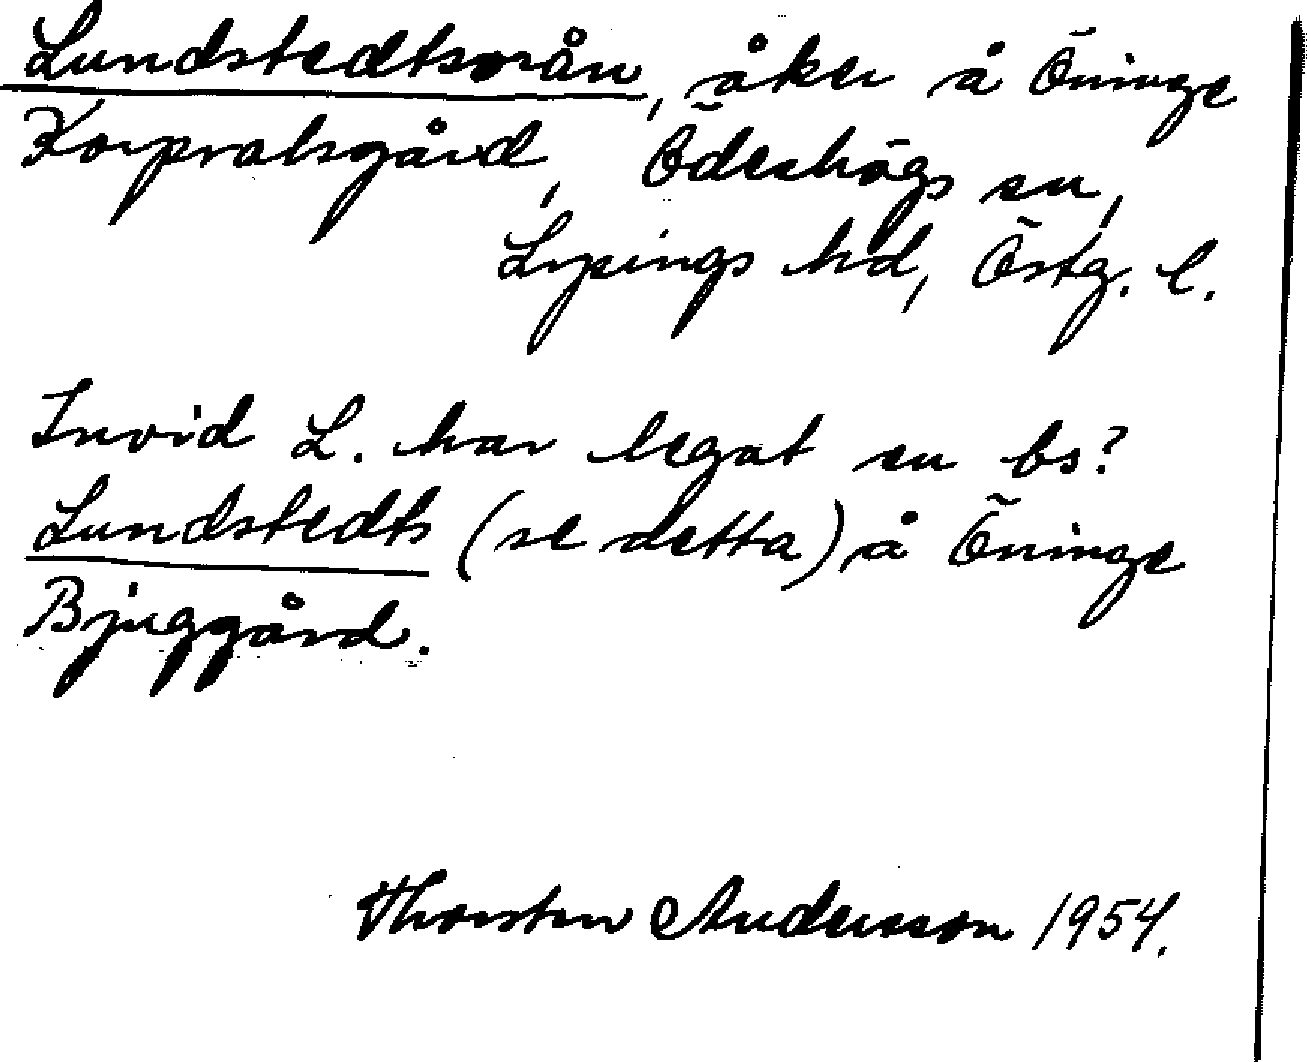 Lundstedtsvrån, åker å Öninge
Korpralsgård, Ödeshögs sn,
Lysings hd, Östg. l.
Invid L. har legat en bs?
Lundstedts (se detta) å Öninge
Bjuggård.
Thorsten Andersson 1954.